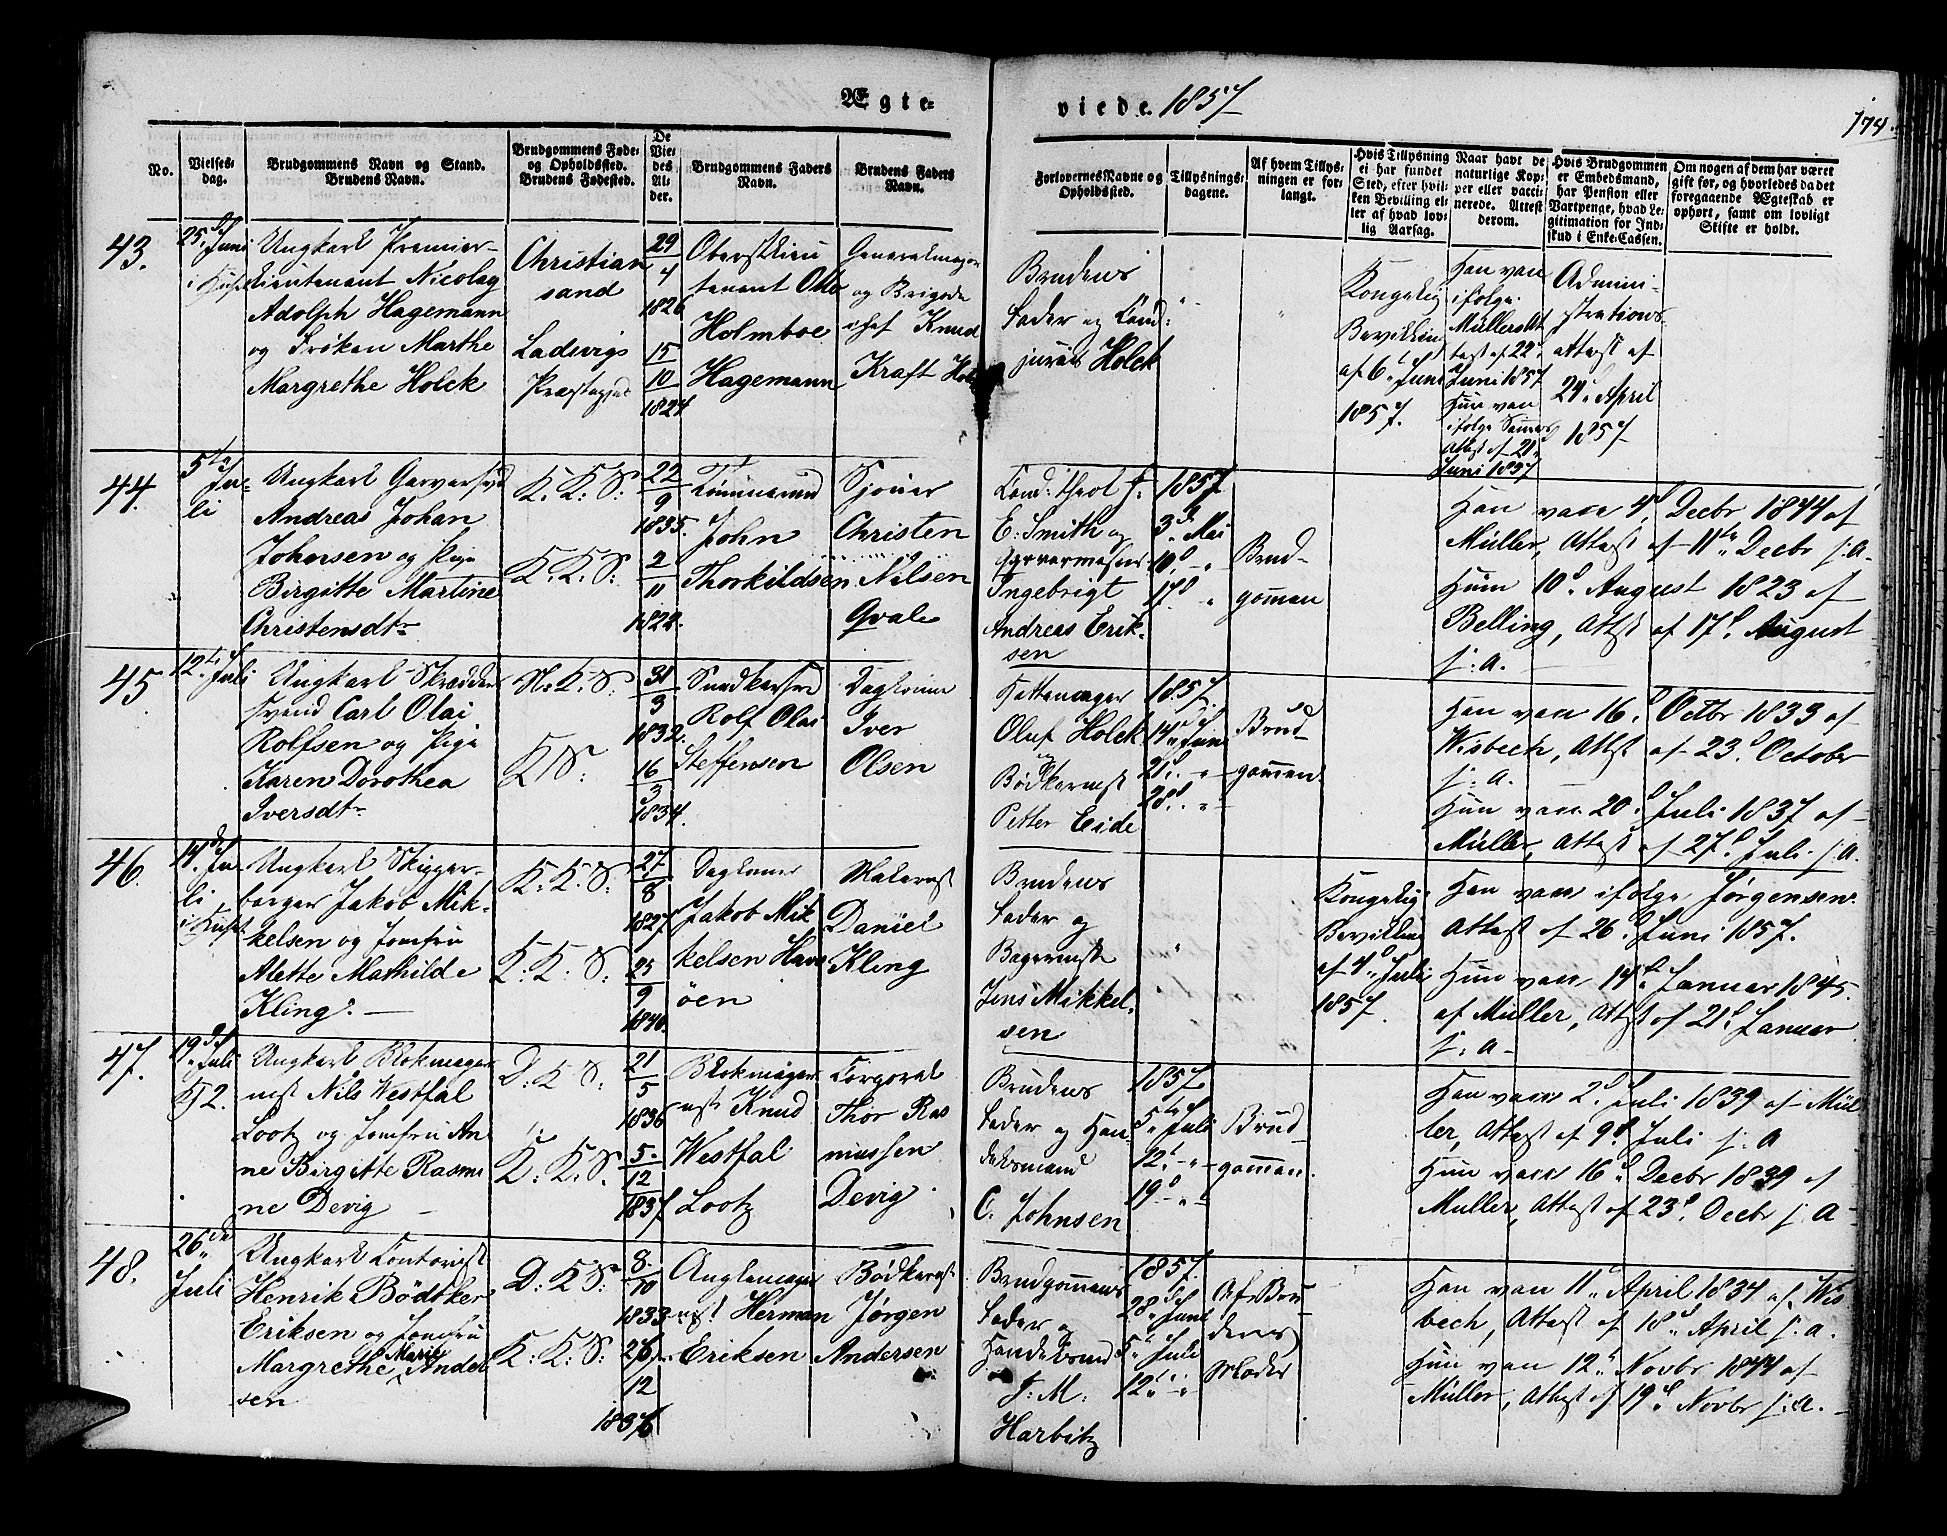 Ægte-
viede. 1857
174.
No.
Vielses-
dag.
Brudgommens Navn og Stand.
Brudens Navn.
Brudgommens Føde-
og Opholdssted.
Brudens Fødested.
De
Vie-
des
Al-
der.
Brudgommens Faders
Navn.
Brudens Faders
Navn.
Forlovernes Navne og
Opholdssted.
Tillysnings-
dagene.
Af hvem Tillys-
ningen er for-
langt.
Hvis Tillysning
ei har fundet
Sted, efter hvil-
ken Bevilling el-
ler af hvad lov-
lig Aarsag.
Naar havt de
naturlige Kop-
per eller vacci-
nerede. Attest
derom.
Hvis Brudgommen
er Embedsmand,
har Pension eller
Vartpenge, hvad Le-
gitimation for Ind-
skud i Enke-Cassen.
Om nogen af dem har været
gift før, og hvorledes da det
foregaaende Ægteskab er
ophørt, samt om lovligt
Skifte er holdt.
43.
25. Juni
i Huset
Ungkarl Premier-
lieutenant Nicolay
Adolph Hagemann
og Frøken Marthe
Margrethe Holck
Christian
sand
Ladvigs
Præstegjæld
29
4
1826
15
10
1824
Oberstlieu
tenant Otto
Holmboe
Hagemann
Generalmajor
og Brigade
chef Knud
Kraft Holck
Brudens
Fader og Cand:
juris Holck
Kongelig
Bevilling
af 6t Juni
1857.
Han vac.
ifølge
Müllers At
test af 22d
Juni 1857
Hun vac
ifølge Samme
Attest af 21d
Juni 1857
Admini-
strations-
attest af
24d April
1857
44.
5te Ju-
li
Ungkarl Garversvd
Andreas Johan
Johnsen og Pige
Birgitte Martine
Christensdtr
K. K. S:
K. K. S:
22
9
1835.
2
11
1822.
Tømmermd
John
Thorkildsen
Sjouer
Christen
Nilsen
Qvale
Cand: theol J.
E. Smith og
Garvermester
Ingebrigt
Andreas Erik-
sen
1857
3d Mai
10d "
17d "
Brud-
gommen
Han vacc 4d Decbr 1844 af
Müller, Attest af 11te Decbr s: a-
Hun 10d August 1823 af
Belling, Attest af 17d August
s: a.
45
12te Juli
Ungkarl Skrædder
svend Carl Olai
Rolfsen og Pige
Karen Dorothea
Iversdtr
N. K. S:
K S:
31
3
1832.
16
3
1834.
Rolf Olai
Steffensen
Dagløner
Iver
Olsen
Hattemager
Oluf Holck
og
Bødkermst
Petter Eide
1857.
14d Juni
21d "
28d "
Brud-
gommen
Han vacc 16d Octbr 1833 af
Wisbech, Attest af 23d October
s: a.
Hun vacc 20d Juli 1837 af
Müller, Attest af 27d Juli s: a.
46.
14d Ju-
li
i Huset
Ungkarl Skipper-
borger Jakob Mik-
kelsen og Jomfru
Alette Mathilde
Kling. —
K. K. S:
K. K. S:
27
8
1827
25
9
1840.
Dagløner
Jakob Mik
kelsen Havs
øen
Malermst
Daniel
Kling
Brudens
Fader og
Bagermstr
Jens Mikkel-
sen
Kongelig
Bevilling
af 4d Juli
1857.
Han vacc ifølge Jørgensens
Attest af 26d Juni 1857.
Hun vacc 14d Januar 1845
af Müller, Attest af 21d Januar
s: a-
47.
19d Juli
Kj 2.
Ungkarl Blokmager
mst Nils Westfal
Lootz og Jomfru An-
ne Birgitte Rasmi
ne Devig —
D. K S:
K. K. S.
21
5
1836
5
12
1837.
Blokmager
mst Knud
Westfal
Lootz
Corporal
Thor Ras
mussen
Devig.
Brudens
Fader og Han-
delsmand
C. Johnsen
1857.
5te Juli
12t "
19d "
Brud-
gommen.
Han vacc 2d Juli 1839 af Mül
ler, Attest af 9d Juli s: a
Hun vacc 16d Decbr 1839 af
Müller, Attest af 23d Decbr s: a-
48.
26de
Juli
Ungkarl Contorist
Henrik Bødtker
Eriksen og Jomfru
Margrethe Marie Ander
sen
D: K S:
K. K: S:
8.
10
1833
26
12
1836
Anglemager
mst Herman
Eriksen
Bødkermst
Jørgen
Andersen
Brudgommens
Fader og
Handelsmd
J: M:
Harbitz
1857.
28d Juni
5te Juli
12t "
Af Bru
dens
Moder
Han vac 11d April 1834 af Wis
bech, Attest af 18d April s: a.
Hun vac 12t Novbr 1844 af
Müller, Attest af 19d Novbr s: a. -